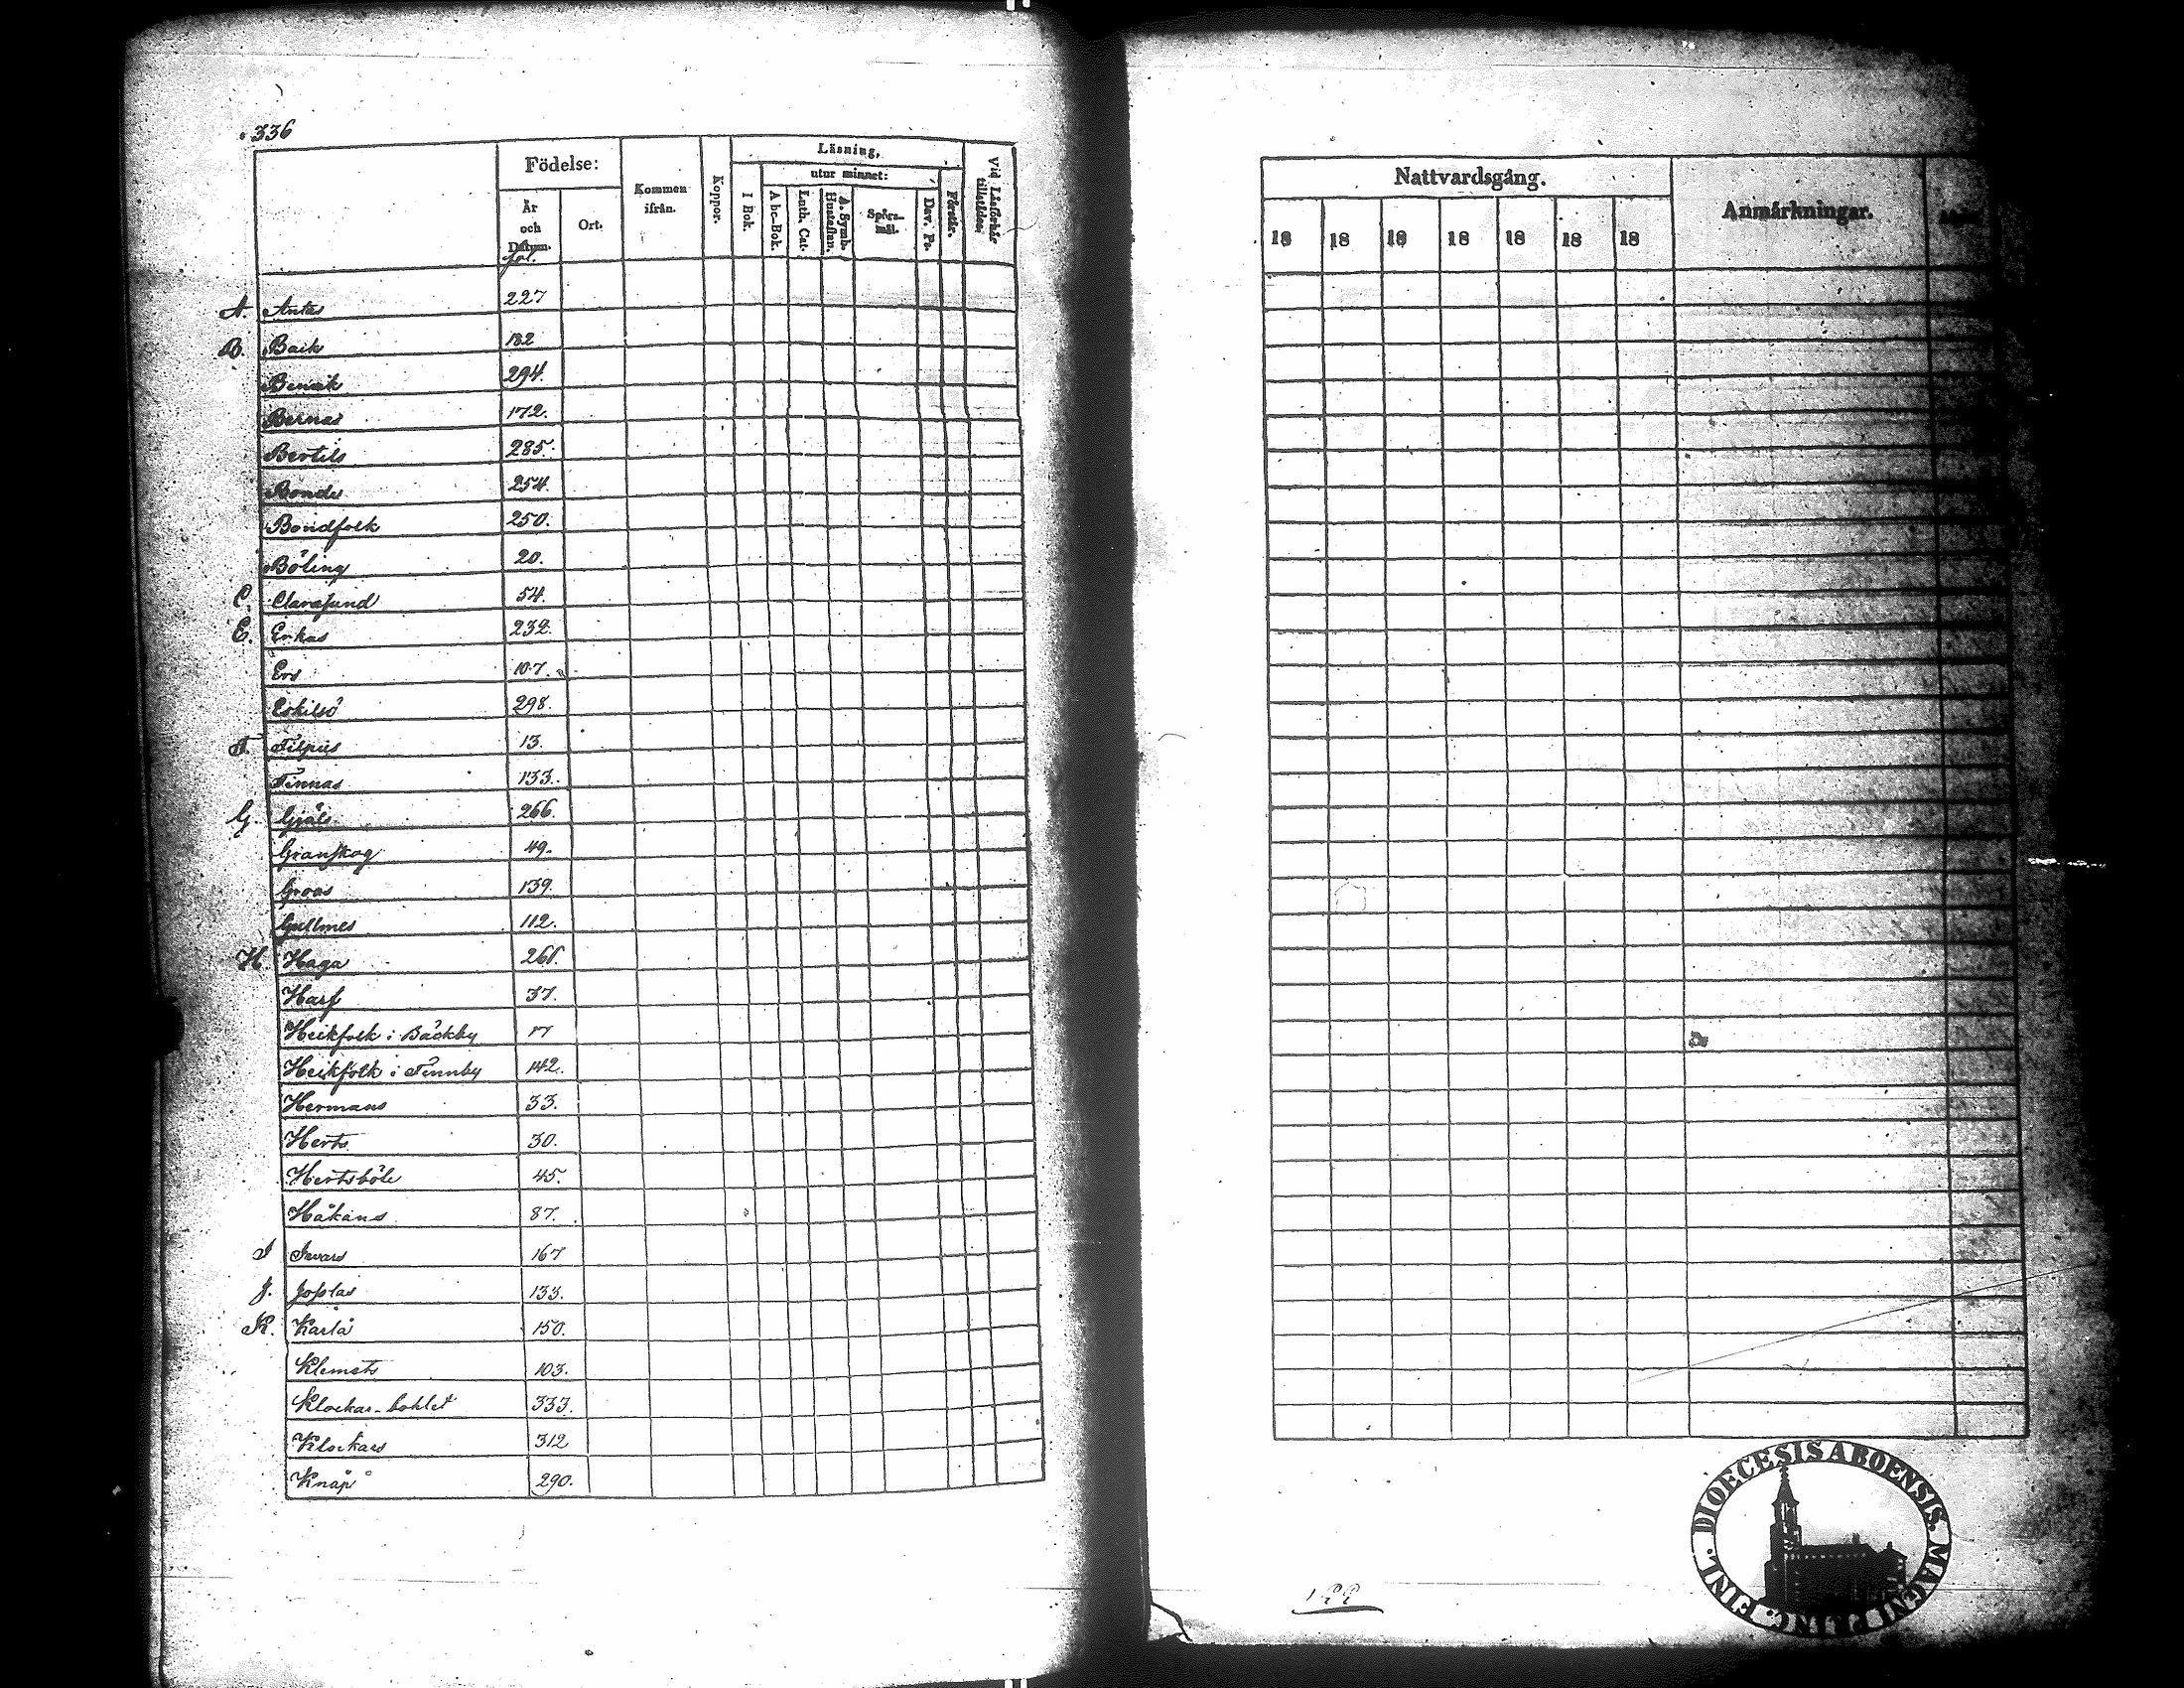 336
Födelse:
År och Datum.
Ort.
Kommen ifrån.
Koppor.
Läsning,
utur minnet:
I Bok.
Abc-Bok.
Luth. Cat.
A. Symb. Hustaflan.
Spörsmål.
Dav. Ps.
Förstår.
Vid Läsförhör tillstädes.
fol.
A. Antas 227
B. Back 182
294.
Bernas 172.
Bertils 285.
Bonde 254.
Bondfolk 250.
Böling 20.
C. Clarasund 54.
E. Erkas 232.
Ers 107.
Eskilsö 298.
F. Filpus 13.
Finnas 133.
G. Gjäls 266.
Granskog 49.
Groas 139.
Gullmes 112.
H. Haga
Harf 37.
Heikfolk i Bäckby 17
Heikfolk i Finnby 142.
Hermans 33.
Herts 30.
Hertsböle 45.
Håkans 87.
I Ivars 167
J. Joplas 133.
K. Karlå 150.
Klemets 103.
Klockar-bohlet 333.
Klockars 312
Knäp 290.
Nattvardsgång.
Anmärkningar.
18 18 18 18 18 18 18
DIOECESIS ABOENSIS. MAGNI PRINC. FINL.